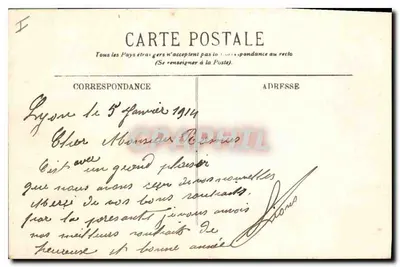 I
CARTE POSTALE
Tous les Pays étrangers n'acceptent pas la Correspondance au recto
(Se renseigner à la Poste).
CORRESPONDANCE
ADRESSE
Lyon le 5 Janvier 1914
Cher Monsieur
C'est avec un grand plaisir
que nous avons reçu de vos nouvelles
Merci de vos bons souhaits
par la présente je vous envois
nos meilleurs souhaits de
heureuse et bonne année